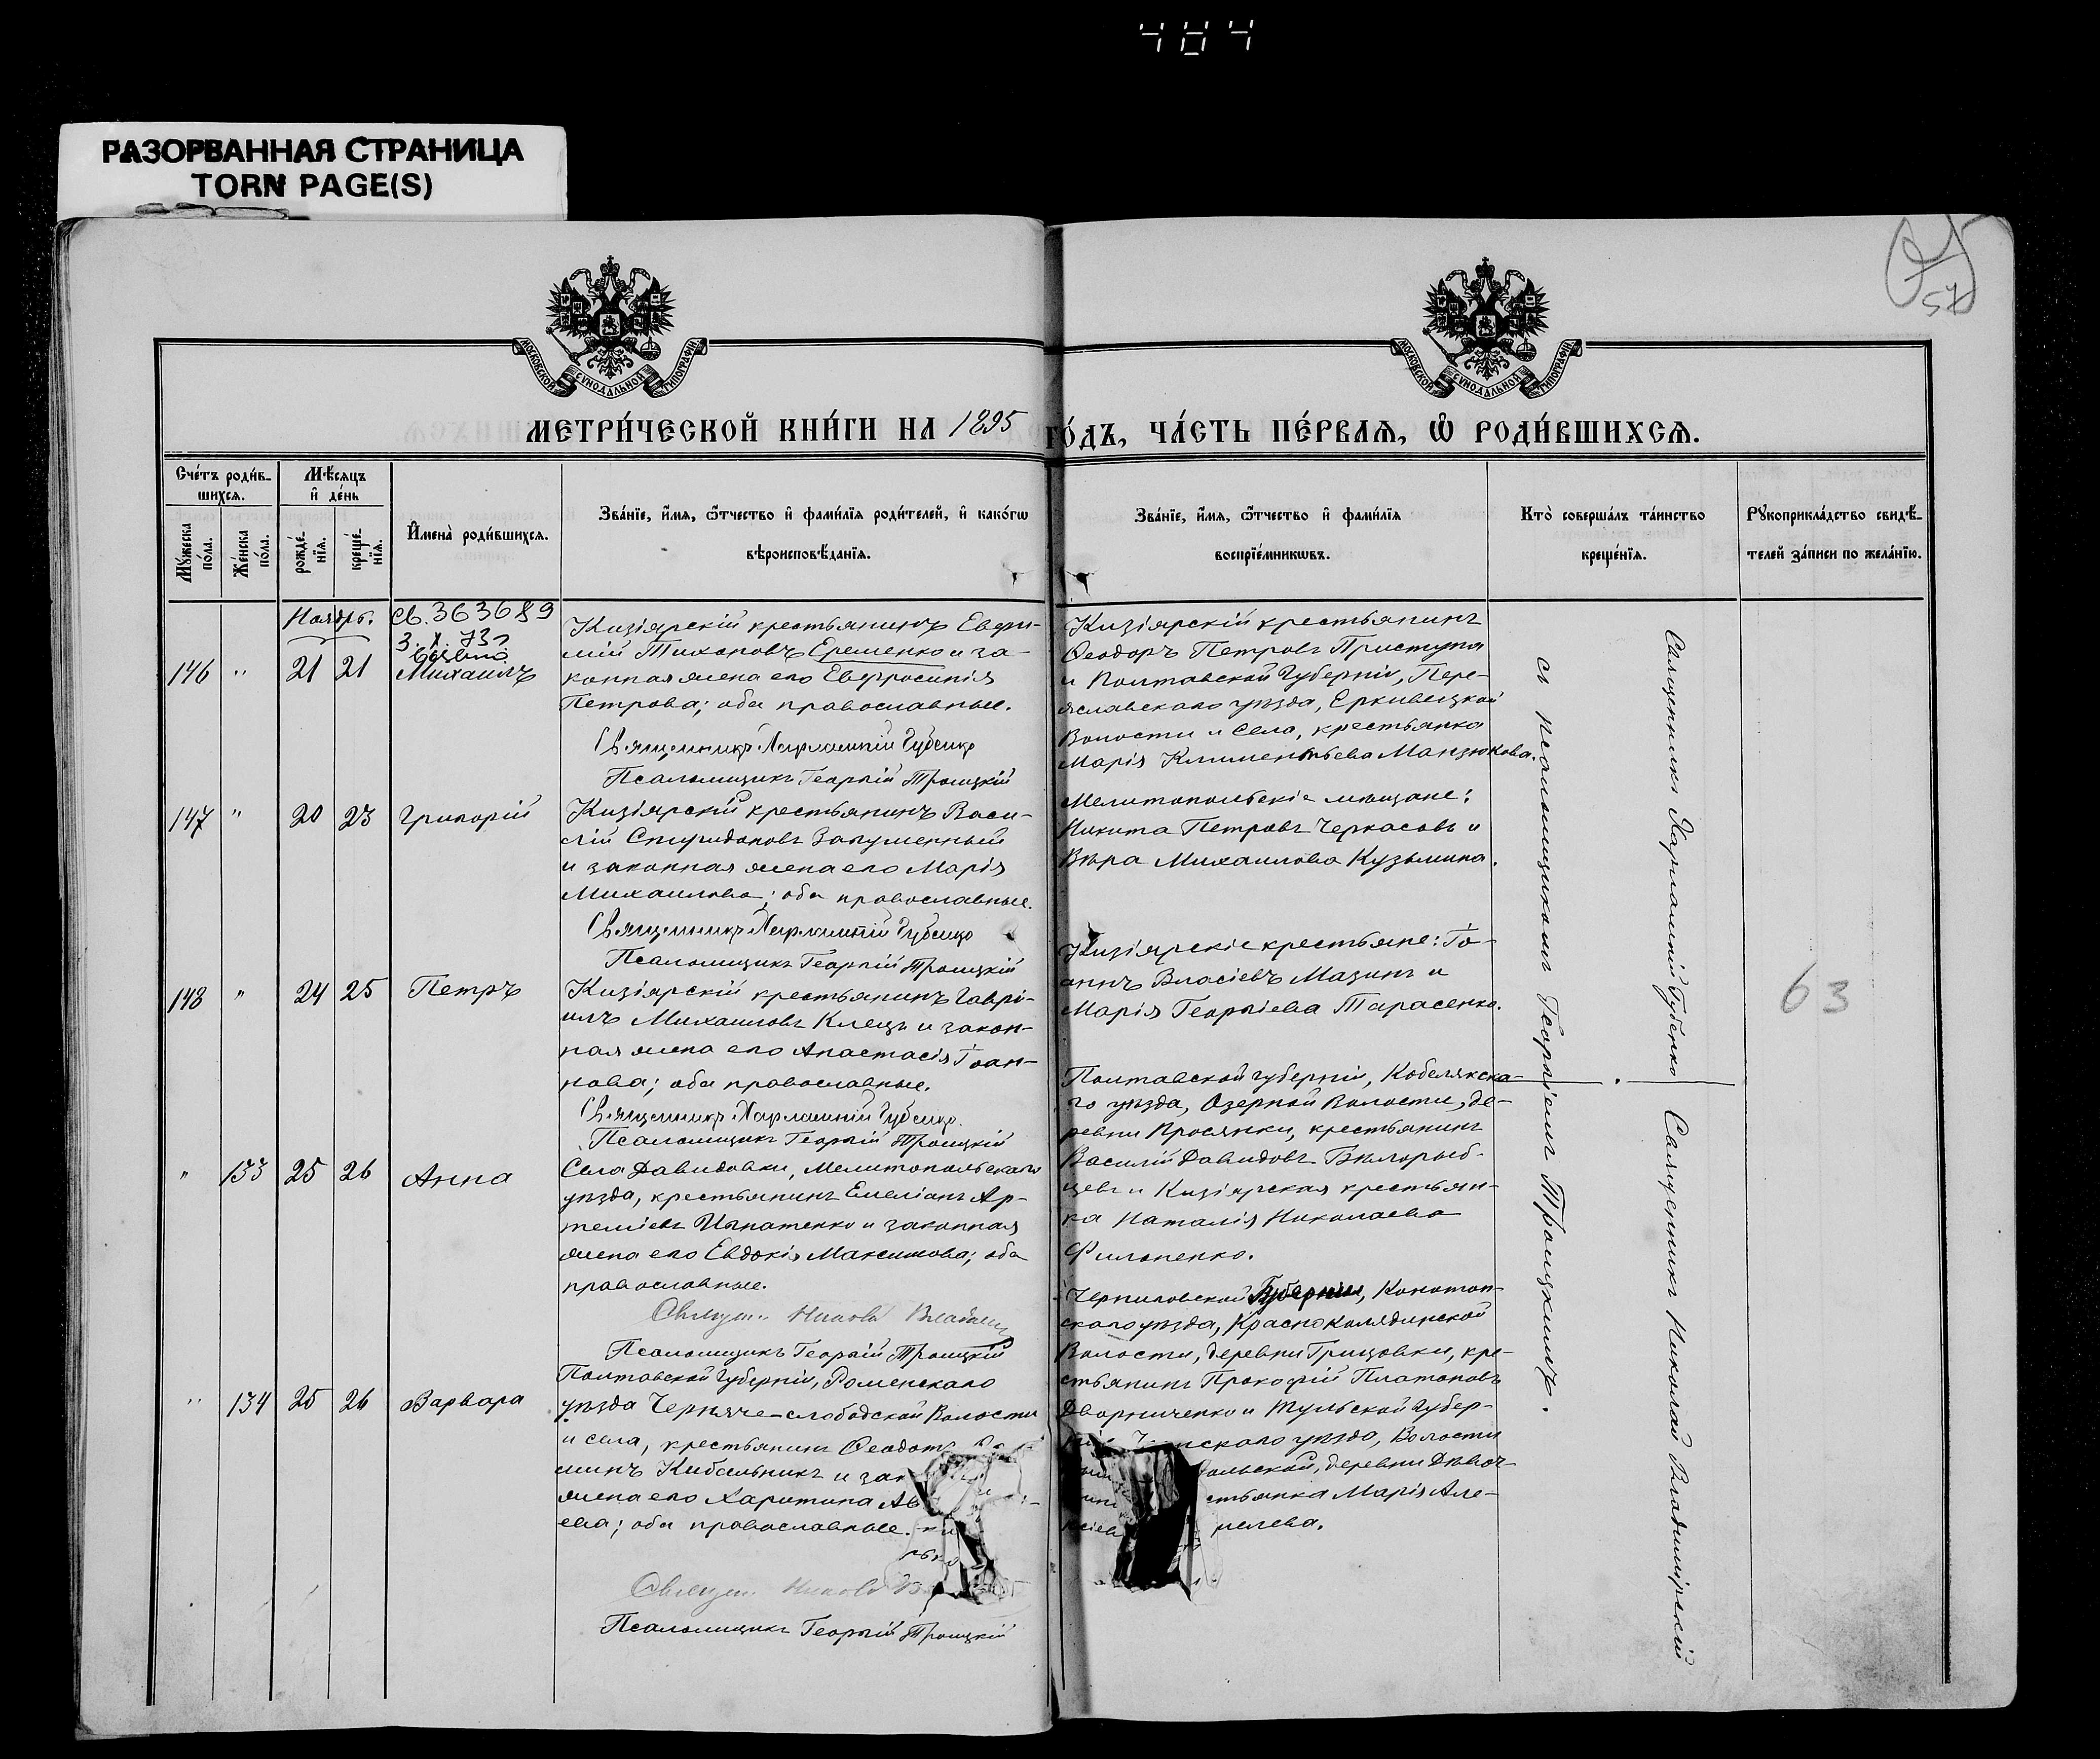 484
РАЗОРВАННАЯ СТРАНИЦА
TORN PAGE(S)
57
МОСКОВСКОЙ СѴНОДАЛЬНОЙ ТИПОГРАФІИ
МОСКОВСКОЙ СѴНОДАЛЬНОЙ ТИПОГРАФІИ
МЕТРИ́ЧЕСКОЙ КНИ́ГИ НА 1895 ГО́ДЪ, ЧА́СТЬ ПЕ́РВАЯ, Ѡ РОДИ́ВШИХСЯ.
Сче́тъ роди́в-
шихся.
Мѣ́сяцъ
и де́нь
Мꙋ́жеска
по́ла.
Же́нска
по́ла.
рожде́-
нїя.
креще́-
нїя.
Имена̀ роди́вшихся.
Зва́нїе, и́мя, ѻ́тчество и фами́лїя роди́телей, и како́гѡ
вѣроисповѣ́данїя.
Зва́нїе, и́мя, ѻ́тчество и фами́лїя
воспрїе́мникѡвъ.
Кто̀ соверша́лъ та́инство
креще́нїя.
Рꙋкоприкла́дство свидѣ́-
телей за́писи по жела́нїю.
Ноябрь.
Св. 363689
3. X. 73г
146 " 21 21 Михаилъ
Кизіярскій крестьянинъ Евѳи-
мій Тихоновъ Еременко и за-
конная жена его Евфросинія
Петрова; оба православные.
Священникъ Харлампій Губенко
Псаломщикъ Георгій Троицкій
Кизіярскій крестьянинъ
Ѳеодоръ Петровъ Приступа
и Полтавской Губерніи, Пере-
яславскаго уѣзда, Ерковецкой
Волости и Села, крестьянка
Марія Климентьева Манзюкова.
147 " 20 23 Григорій
Кизіярскій крестьянинъ Васи-
лій Спиридоновъ Запушенный
и законная жена его Марія
Михаилова; оба православные.
Священникъ Харлампій Губенко
Псаломщикъ Георгій Троицкій
Мелитопольскіе мѣщане:
Никита Петровъ Черкасовъ и
Вѣра Михаилова Кузьмина.
148 " 24 25 Петръ
Кизіярскій крестьянинъ Гаврі-
илъ Михаиловъ Клецъ и закон-
ная жена его Анастасія Іоан-
нова; оба православные.
Священникъ Харлампій Губенко.
Псаломщикъ Георгій Троицкій
Кизіярскіе крестьяне: Іо-
аннъ Власіевъ Мазинъ и
Марія Георгіева Тарасенко.
" 133 25 26 Анна
Села Давидовки, Мелитопольскаго
уѣзда, крестьянинъ Емеліанъ Ар-
теміевъ Игнатенко и законная
жена его Евдокія Максимова; оба
православные.
Священ. Никола
Псаломщикъ Георгій Троицкій
Полтавской губерніи, Кобелякска-
го уѣзда, Озерной Волости, де-
ревни Просянки, крестьянинъ
Василій Давидовъ Бѣлорыб-
цевъ и Кизіярская крестьян-
ка Наталія Николаева
Филопенко.
" 134 25 26 Варвара
Полтавской Губерніи, Роменскаго
уѣзда Черняче-слободской Волости
и села, крестьянинъ Ѳеодотъ
минъ Кибальникъ и зак
жена его Харитина Ав
ева; оба православные.
Священ. Никола
Псаломщикъ Георгій Троицкій
Черниговской Губерніи, Конотоп-
скаго уѣзда, Краснокалядинской
Волости, деревни Грицовки, кре-
стьянинъ Прокофій Платоновъ
Дворниченко и Тульской Губер-
скаго уѣзда, Волости
ольской, деревни Дѣвоч-
стьянка Марія Але-
ксіев мелева.
Священникъ Харлампій Губенко
Священникъ Николай Владимірскій
съ псаломщикомъ Георгіемъ Троицкимъ.
63